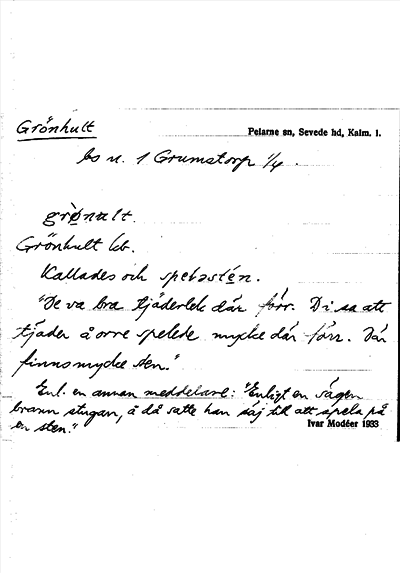 Grönhult
Pelarne sn, Sevede hd, Kalm. l.
bs u. 1 Grumstorp 1/4.
grø̀nɑlt.
Grönhult lht.
Kallades och spelɘstén.
"De va bra tjäderlek där förr. Di sa att
tjäder å orre spelede mycke där förr. Där
finns mycke sten."
Enl. en annan meddelare: "Enligt en sägen
brann stugan, å då satte han säj til att spela på
en sten."
Ivar Modéer 1933